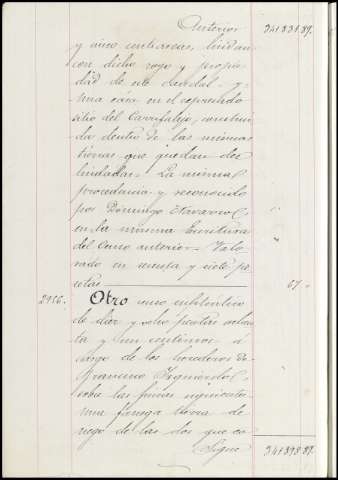 Anterior 341831.87.
y cinco centiareas, lindan
con dicho rozo y propie
dad de este caudal = y
una casa en el espresado
sitio del Carrufalejo, construi
da dentro de las mismas
tierras que quedan des
lindadas. La misma
procedencia y reconocido
por Domingo Navarro
en la misma Escritura
del Censo anterior = Valo
rado en sesenta y siete pe
setas 67.
2916. Otro censo enfiteutico
de diez y ocho pesetas ochen
ta y un centimos á
cargo de los herederos de
Francisco Izquierdo,
sobre las fincas siguientes
Una fanega tierra de
riego de las dos que co
Sigue 341898.87.